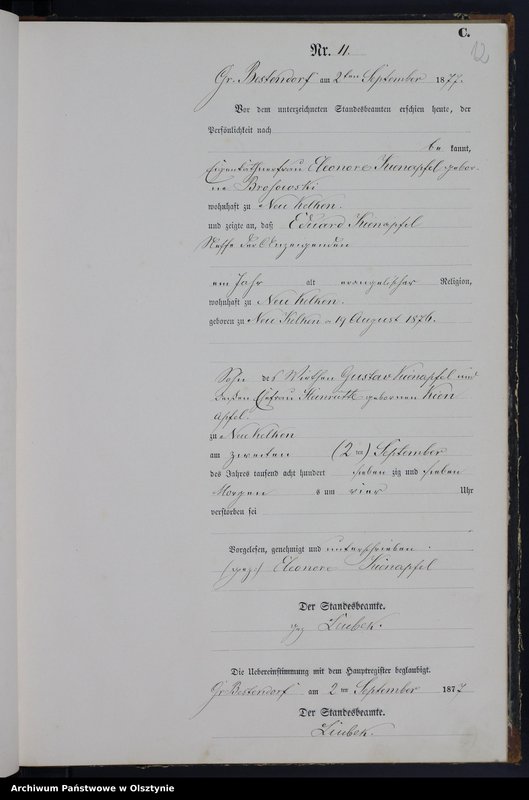 C.
12
Nr. 11.
Gr. Bestendorf am 2ten September 1877.
Vor dem unterzeichneten Standesbeamten erschien heute, der
Persönlichkeit nach
be kannt,
Eigenkäthnerfrau Eleonore Kienapfel gebor-
ne Brosowski
wohnhaft zu Neu Kelken.
und zeigte an, daß Eduard Kienapfel
Neffe der Anzeigenden
ein Jahr alt evangelischer Religion,
wohnhaft zu Neu Kelken.
geboren zu Neu Kelken 19 August 1876.
Sohn des Wirthen Gustav Kienapfel und
dessen Ehefrau gebornen Kien
apfel.
zu Neu Kelken
am zweiten (2ten) September
des Jahres tausend acht hundert sieben zig und sieben
Morgen s um vier Uhr
verstorben sei
Vorgelesen, genehmigt und unterschrieben.
(gez) Eleonore Kienapfel
Der Standesbeamte.
gez Liubek.
Die Uebereinstimmung mit dem Hauptregister beglaubigt.
Gr Bestendorf am 2ten September 1877
Der Standesbeamte.
Liubek.
Archiwum Państwowe w Olsztynie